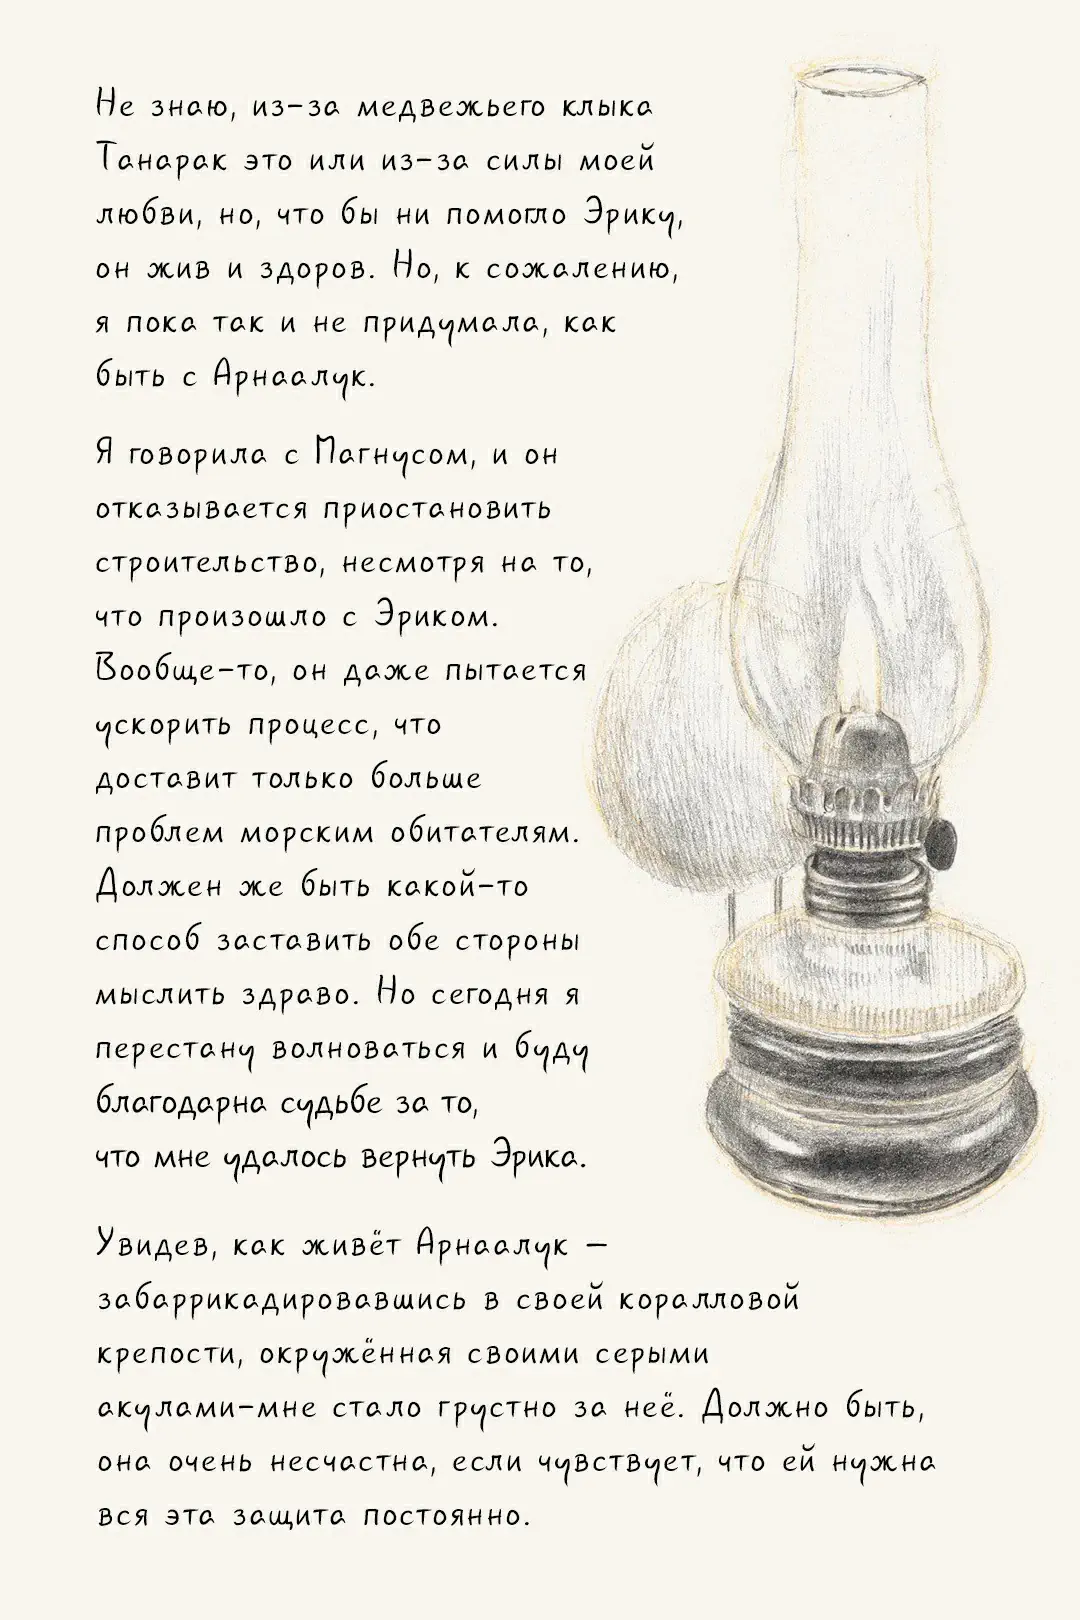 Не знаю, из-за медвежьего клыка
Танарак это или из-за силы моей
любви, но, что бы ни помогло Эрику,
он жив и здоров. Но, к сожалению,
я пока так и не придумала, как
быть с Арнаалук.
Я говорила с Магнусом, и он
отказывается приостановить
строительство, несмотря на то,
что произошло с Эриком.
Вообще-то, он даже пытается
ускорить процесс, что
доставит только больше
проблем морским обитателям.
Должен же быть какой-то
способ заставить обе стороны
мыслить здраво. Но сегодня я
перестану волноваться и буду
благодарна судьбе за то,
что мне удалось вернуть Эрика.
Увидев, как живёт Арнаалук –
забаррикадировавшись в своей коралловой
крепости, окружённая своими серыми
акулами-мне стало грустно за неё. Должно быть,
она очень несчастна, если чувствует, что ей нужна
вся эта защита постоянно.